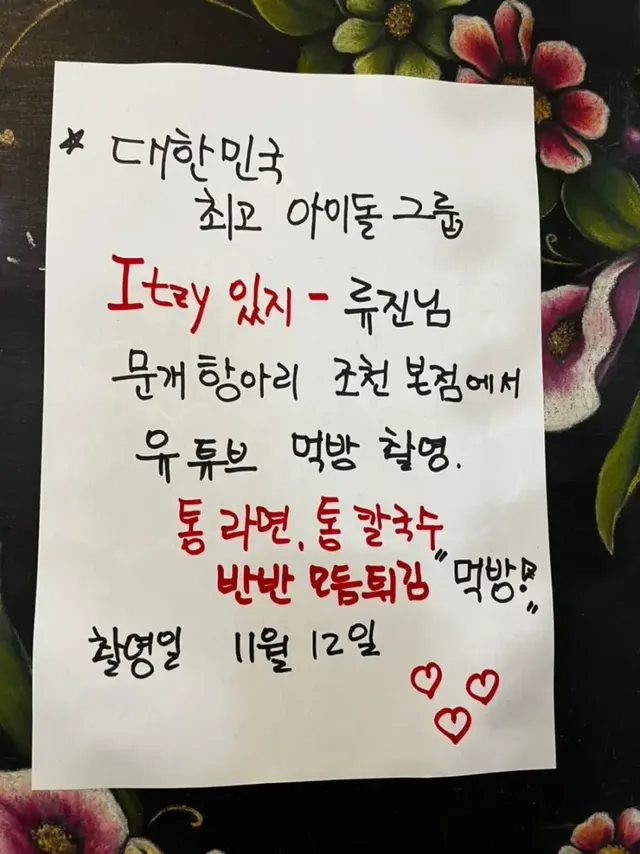 ☆ 대한민국
최고 아이돌 그룹
Itzy 있지 - 류진님
문개항아리 조천 본점에서
유튜브 먹방 촬영.
통라면, 통칼국수
반반 모듬튀김 "먹방!"
촬영일 11월 12일
♡♡♡